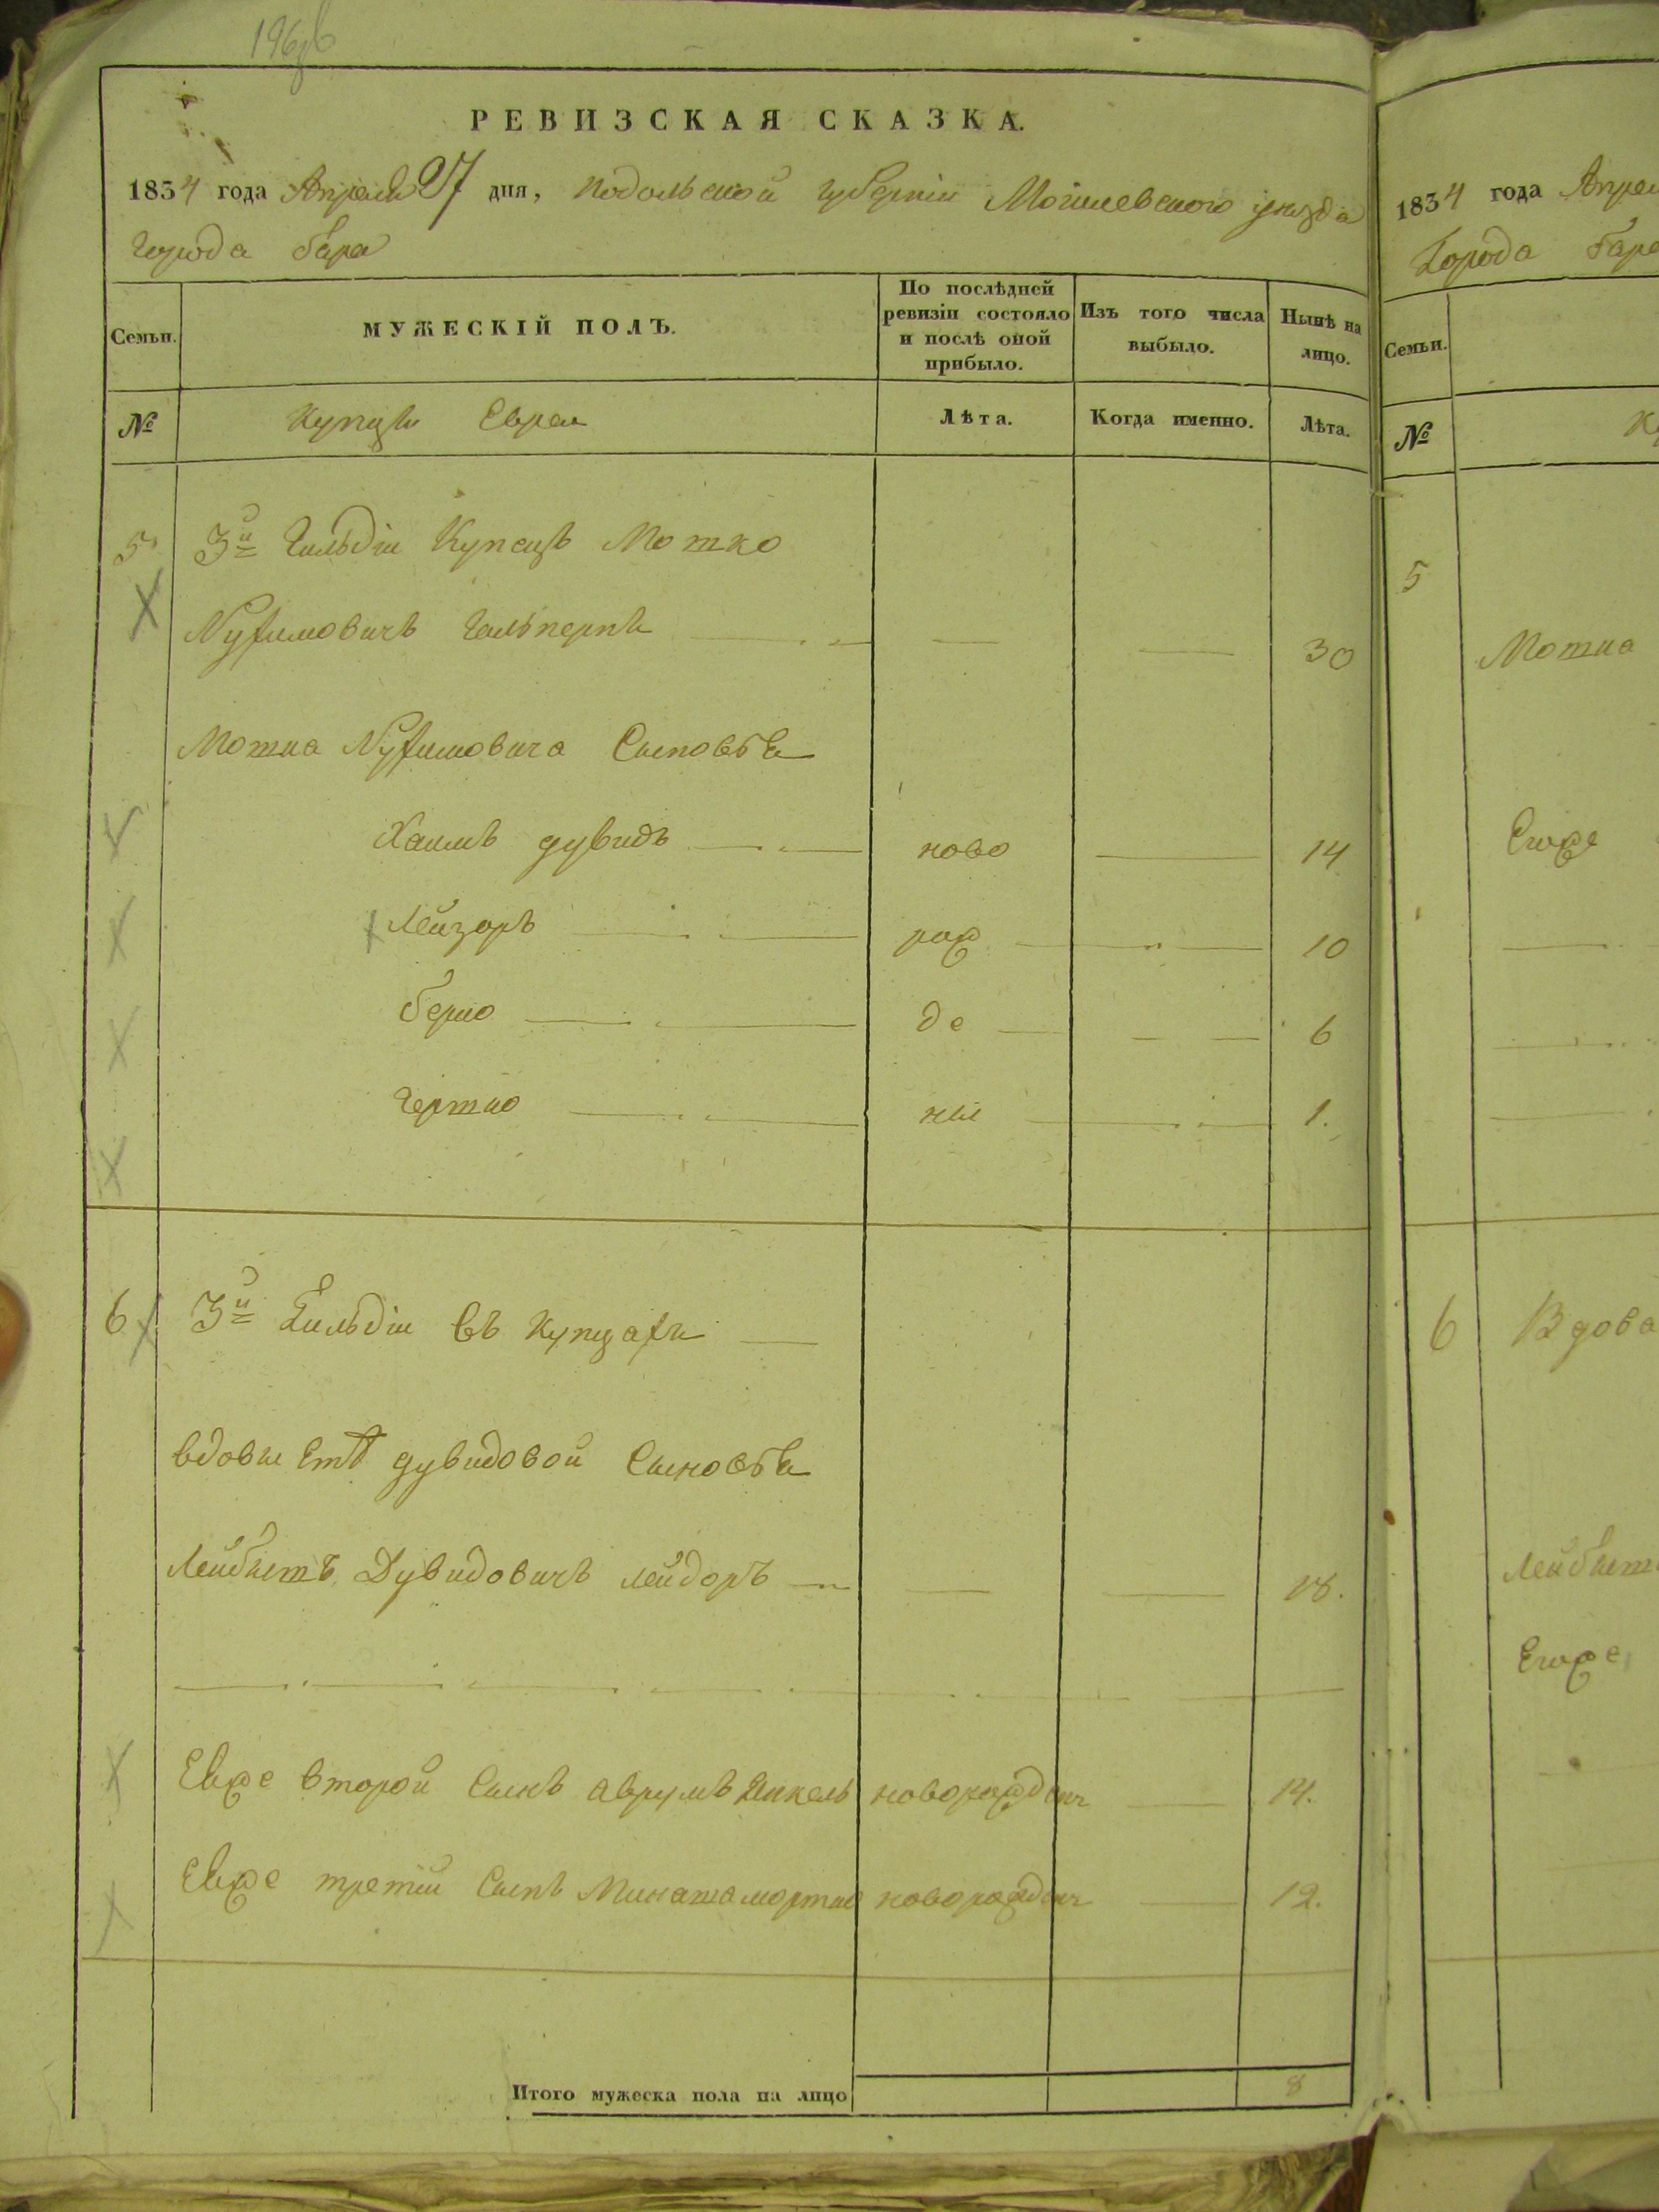 196об
РЕВИЗСКАЯ СКАЗКА.
1834 года Апреля 27 дня, Подольской губерніи Могилевского уезда
города бара
Семьи.
МУЖЕСКІЙ ПОЛЪ.
По послѣдней ревизіи состояло и послѣ оной прибыло.
Изъ того числа выбыло.
Нынѣ на лицо.
№
Купцы Евреи
Лѣта.
Когда именно.
Лѣта.
5 3й Гильдіи Купецъ Мотко
Нухимовичъ Гальпернъ 30
Мотка Нухимовича Сыновья
Хаимъ дувидъ ново 14
Лейзоръ рож 10
берко де 6
Гершко ны 1.
6 3й Гильдіи въ купцахъ
вдовы дувидовой Сыновья
Лейбишъ Дувидовичъ лейдоръ 18.
Евоже второй Сынъ аврумъ Янкель новорожден 14.
Евоже третій Сынъ новорожден 12.
Итого мужеска пола на лицо 8
1834 года Апрел
Города бара
Семьи.
№
5
Мотка
Егоже
6 Вдова
Лейбиш
Егоже